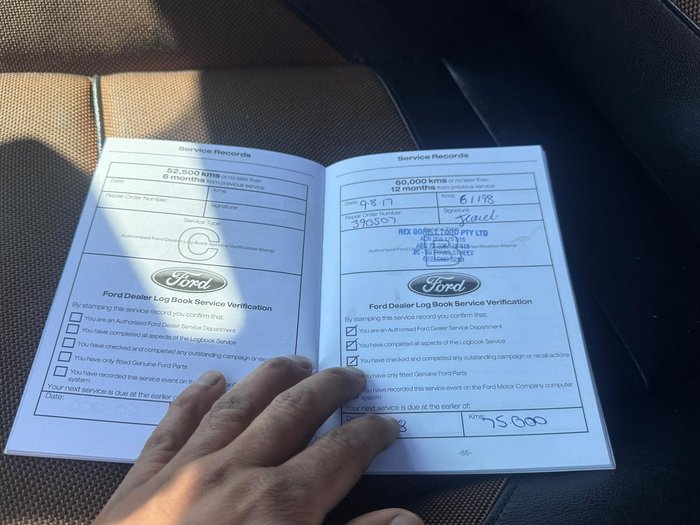 Service Records
52,500 kms or no later than
6 months from previous service
Date: Kms:
Repair Order Number: Signature:
Service Type
Authorised Ford Dealer Log Book Service Verification Stamp
C
Ford
Ford Dealer Log Book Service Verification
By stamping this service record you confirm that:
You are an Authorised Ford Dealer Service Department
You have completed all aspects of the Logbook Service
You have checked and completed any outstanding campaign or recall
You have only fitted Genuine Ford Parts
You have recorded this service event on the
system
Your next service is due at the earlier
Date:
Service Records
60,000 kms or no later than
12 months from previous service
Date: 9.8.17 Kms: 61198
Repair Order Number: Signature:
390507
REX GORELL FORD PTY LTD
Authorised Ford Verification Stamp
STREET
GEELONG
Ford
Ford Dealer Log Book Service Verification
By stamping this service record you confirm that:
You are an Authorised Ford Dealer Service Department
You have completed all aspects of the Logbook Service
You have checked and completed any outstanding campaign or recall actions
have only fitted Genuine Ford Parts
have recorded this service event on the Ford Motor Company computer
system
Your next service is due at the earlier of:
8 Kms: 75000
-55-